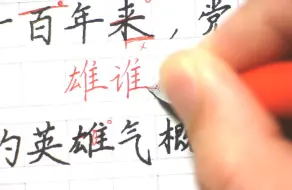 一百年来，党
雄谁
的英雄气概